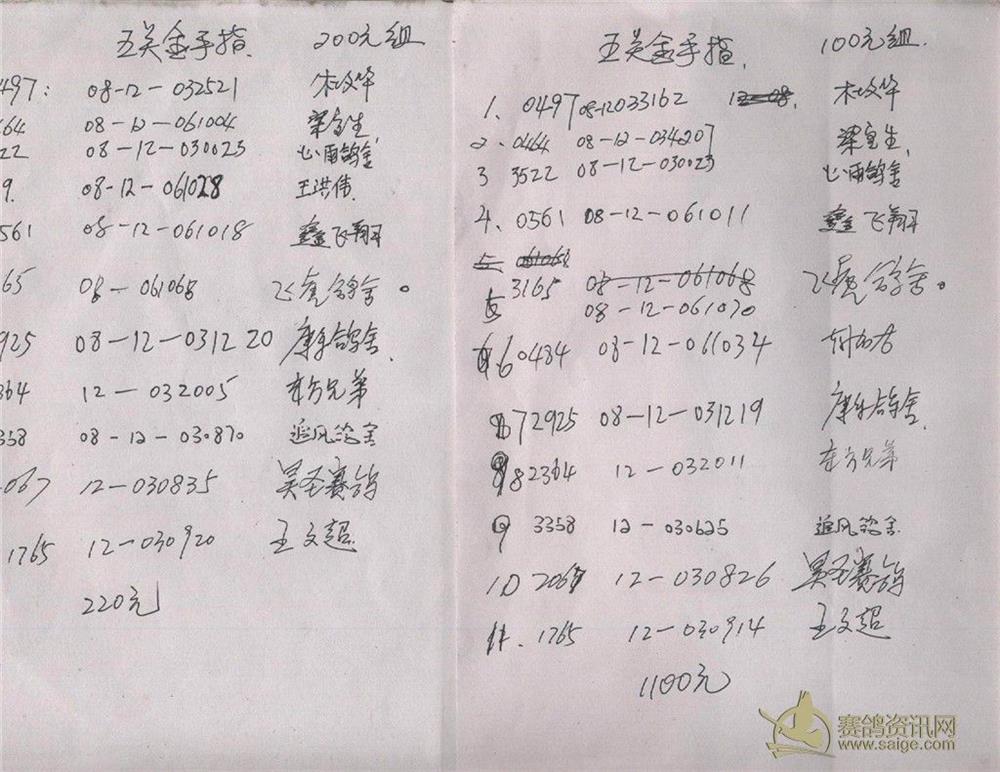 五关金手指 200元组
497: 08-12-032521
64 08-12-061004
22 08-12-030025 心雨鸽舍
9. 08-12-061028 王洪伟
561 08-12-061018 鑫飞翔
65 08-061068 飞虎鸽舍。
925 08-12-031220 康乐鸽舍
364 12-032005 东方兄弟
358 08-12-030870 追风鸽舍
067 12-030835 昊圣赛鸽
1765 12-030920 王文超
220元
五关金手指 100元组
1. 0497 08-12033162
2. 0464 08-12-034207
3 3522 08-12-030023 心雨鸽舍
4. 0561 08-12-061011 鑫飞翔
5 3165 08-12-061068 飞虎鸽舍。
08-12-061070
6 0484 08-12-061034
7 2925 08-12-031219 康乐鸽舍
8 2364 12-032011 东方兄弟
9 3358 12-030625 追风鸽舍
10 2067 12-030826 昊圣赛鸽
11. 1765 12-030914 王文超
1100元
赛鸽资讯网
www.saige.com